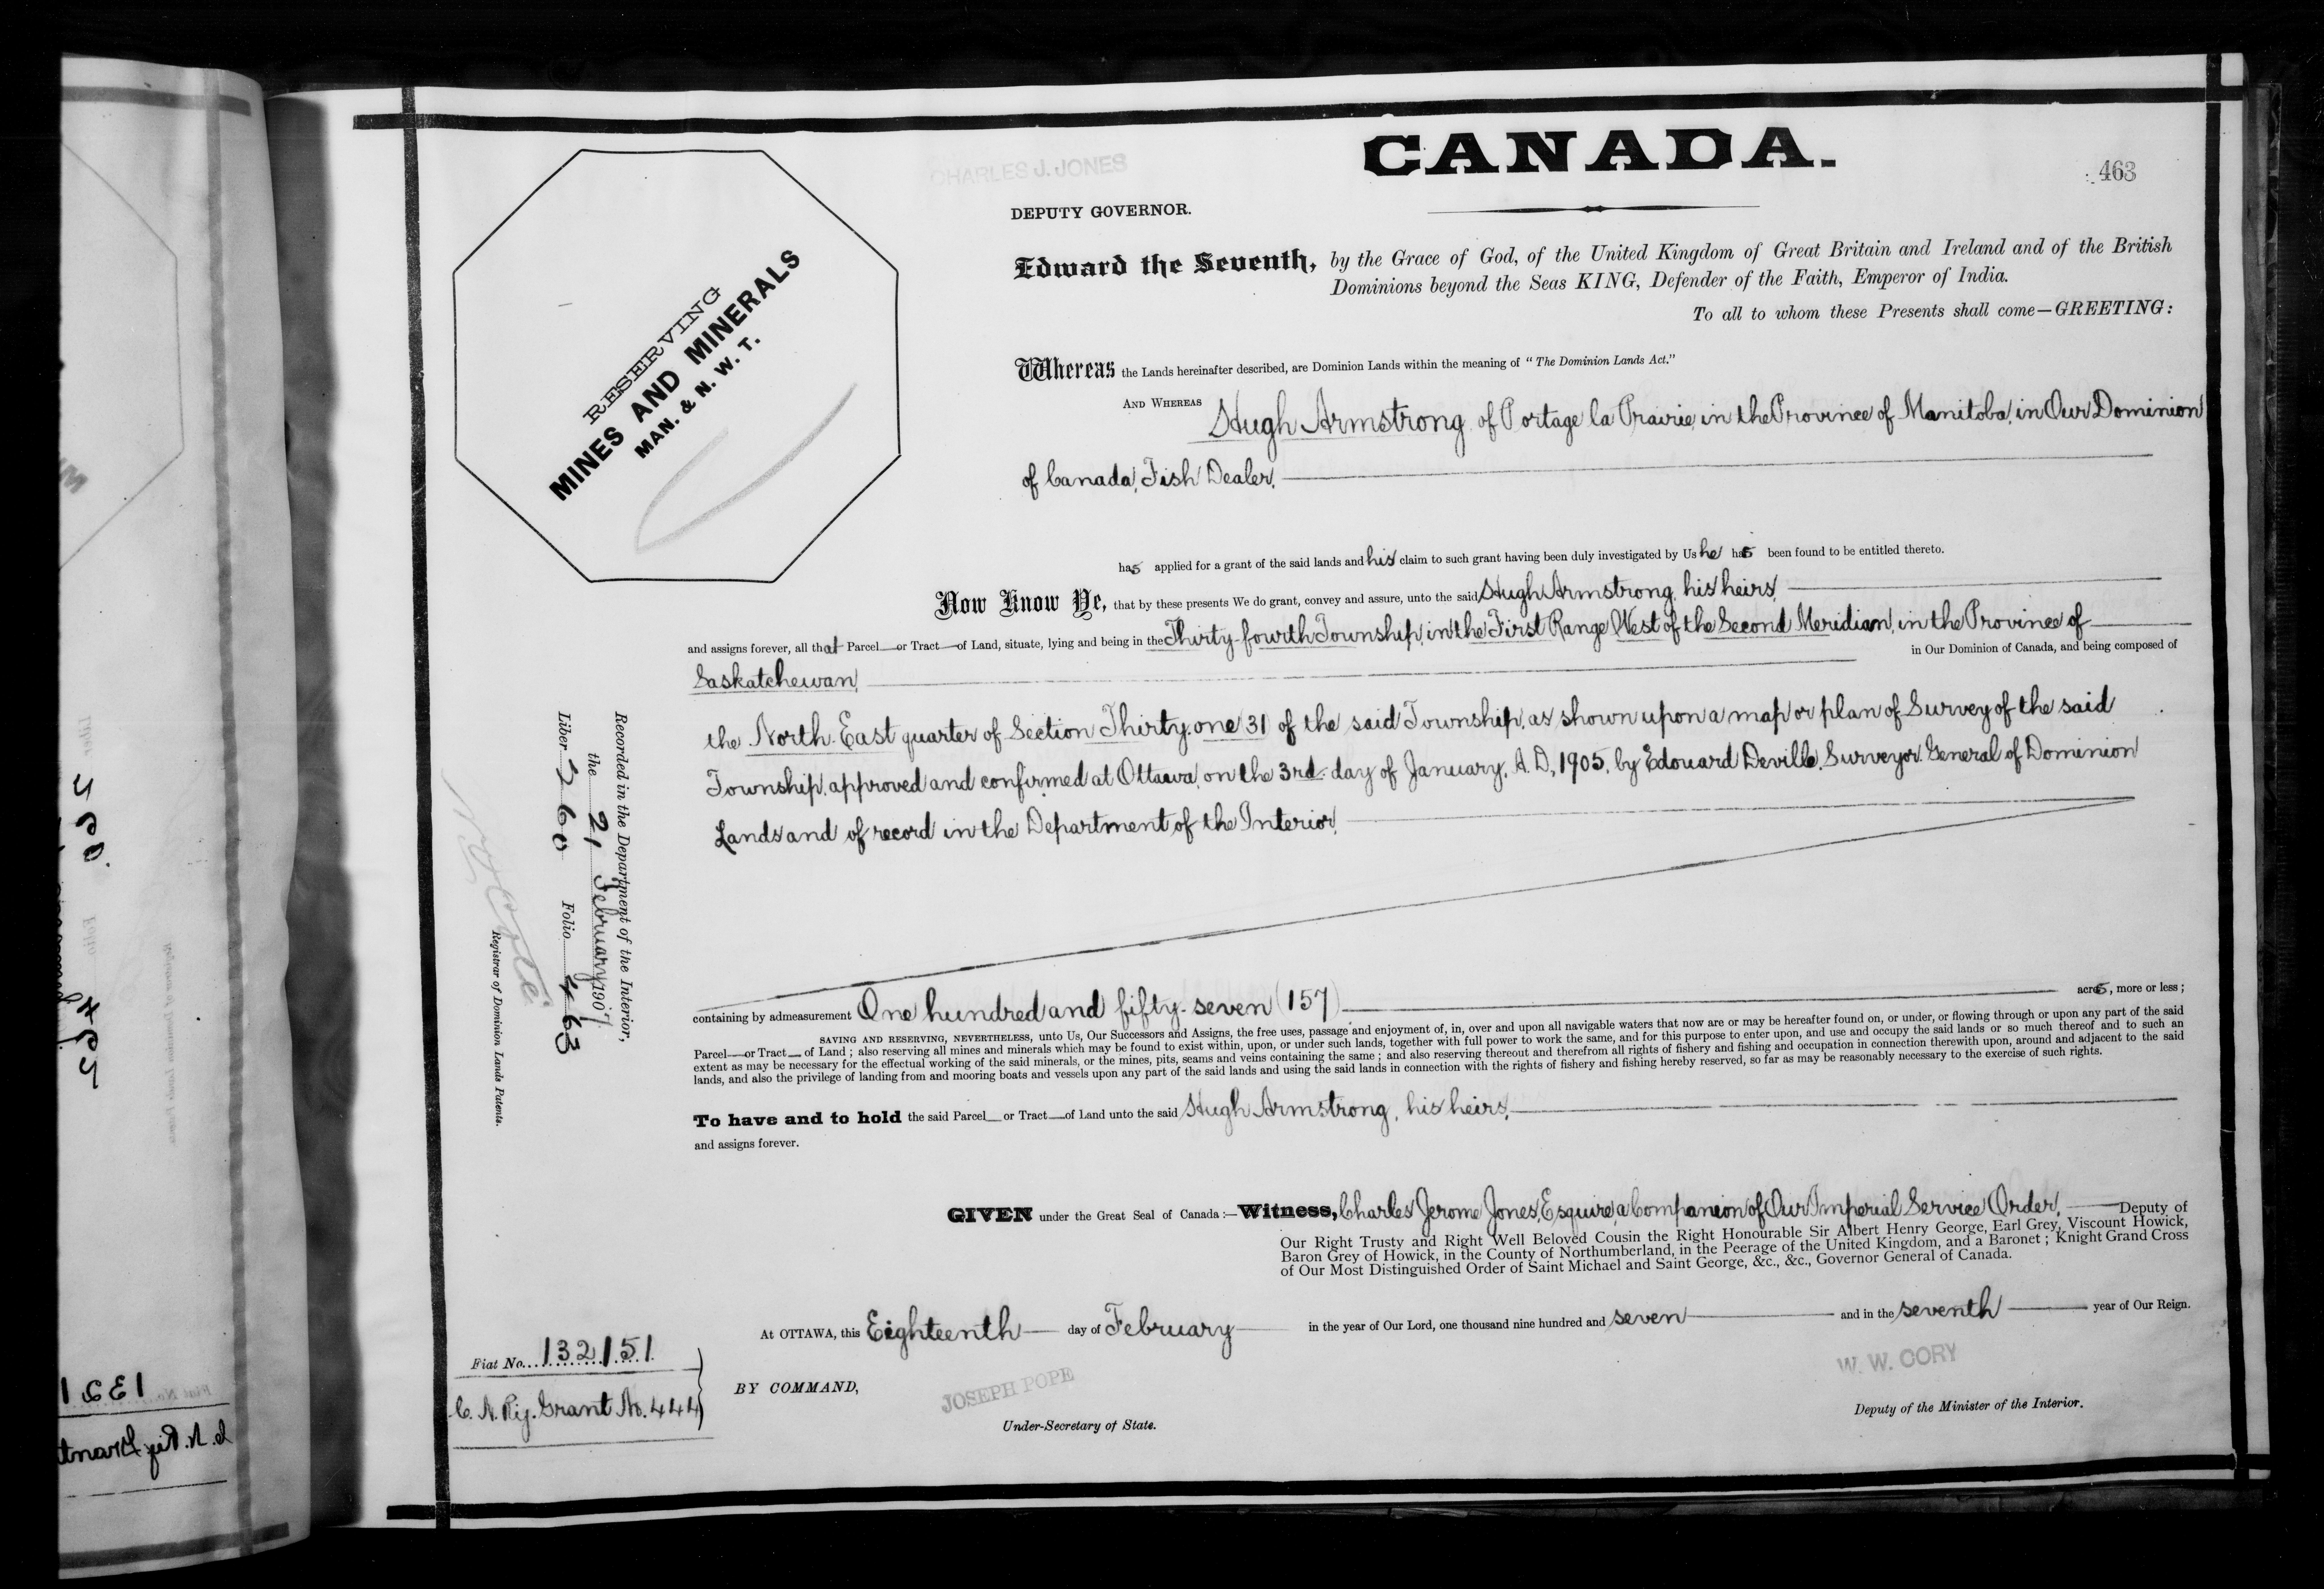 CANADA.
CHARLES J. JONES
463
DEPUTY GOVERNOR.
RESERVING
MINES AND MINERALS
MAN. & N. W. T.
Edward the Seventh, by the Grace of God, of the United Kingdom of Great Britain and Ireland and of the British
Dominions beyond the Seas KING, Defender of the Faith, Emperor of India.
To all to whom these Presents shall come—GREETING:
Whereas the Lands hereinafter described, are Dominion Lands within the meaning of "The Dominion Lands Act."
AND WHEREAS Hugh Armstrong, of Portage la Prairie, in the Province of Manitoba, in Our Dominion
of Canada, Fish Dealer,
has applied for a grant of the said lands and his claim to such grant having been duly investigated by Us he has been found to be entitled thereto.
Now Know Ye, that by these presents We do grant, convey and assure, unto the said Hugh Armstrong, his heirs,
and assigns forever, all that Parcel or Tract of Land, situate, lying and being in the Thirty-fourth Township, in the First Range West of the Second Meridian, in the Province of
Saskatchewan, in Our Dominion of Canada, and being composed of
the North East quarter of Section Thirty-one 31 of the said Township, as shown upon a map or plan of Survey of the said
Township, approved and confirmed at Ottawa, on the 3rd. day of January, A.D. 1905, by Edouard Deville, Surveyor General of Dominion
Lands and of record in the Department of the Interior,
Recorded in the Department of the Interior,
the 21 February 1907.
Liber 260 Folio 463
Registrar of Dominion Lands Patents.
containing by admeasurement One hundred and fifty-seven (157) acres, more or less;
SAVING AND RESERVING, NEVERTHELESS, unto Us, Our Successors and Assigns, the free uses, passage and enjoyment of, in, over and upon all navigable waters that now are or may be hereafter found on, or under, or flowing through or upon any part of the said
Parcel or Tract of Land; also reserving all mines and minerals which may be found to exist within, upon, or under such lands, together with full power to work the same, and for this purpose to enter upon, and use and occupy the said lands or so much thereof and to such an
extent as may be necessary for the effectual working of the said minerals, or the mines, pits, seams and veins containing the same; and also reserving thereout and therefrom all rights of fishery and fishing and occupation in connection therewith upon, around and adjacent to the said
lands, and also the privilege of landing from and mooring boats and vessels upon any part of the said lands and using the said lands in connection with the rights of fishery and fishing hereby reserved, so far as may be reasonably necessary to the exercise of such rights.
To have and to hold the said Parcel or Tract of Land unto the said Hugh Armstrong, his heirs,
and assigns forever.
GIVEN under the Great Seal of Canada:—Witness, Charles Jerome Jones, Esquire, a Companion of Our Imperial Service Order, Deputy of
Our Right Trusty and Right Well Beloved Cousin the Right Honourable Sir Albert Henry George, Earl Grey, Viscount Howick,
Baron Grey of Howick, in the County of Northumberland, in the Peerage of the United Kingdom, and a Baronet; Knight Grand Cross
of Our Most Distinguished Order of Saint Michael and Saint George, &c., &c., Governor General of Canada.
At OTTAWA, this Eighteenth day of February in the year of Our Lord, one thousand nine hundred and seven and in the seventh year of Our Reign.
Fiat No. 132151
C. N. Ry. Grant No. 444
BY COMMAND,
JOSEPH POPE
Under-Secretary of State.
W. W. CORY
Deputy of the Minister of the Interior.